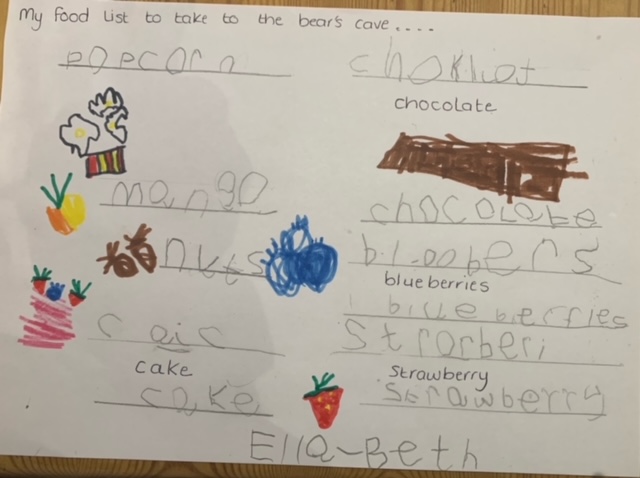 My food list to take to the bear's cave....
popcorn
mango
nuts
caic
cake
cake
choklot
chocolate
chocolate
bloobers
blueberries
blueberries
strorberi
strawberry
strawberry
Ella-Beth